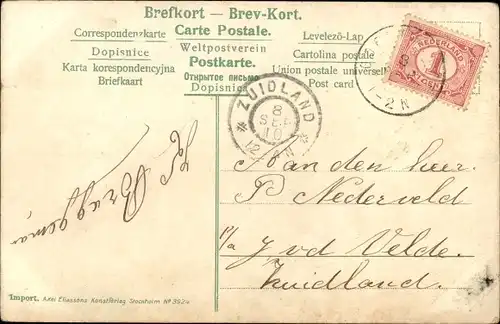 Brefkort — Brev-Kort.
Correspondenzkarte Carte Postale. Levelező-Lap
Dopisnice Weltpostverein Cartolina postale
Karta korespondencyjna Postkarte. Union postale universelle
Briefkaart Открытое письмо Post card
Dopisnica
NEDERLAND
1
CENT
1-2N
ZUIDLAND
8
SEP
10
12 N
Aan den heer
P Nederveld
p/a J vd Velde.
Zuidland.
Bruggeman
Import. Axel Eliassons Konstförlag Stockholm No 392